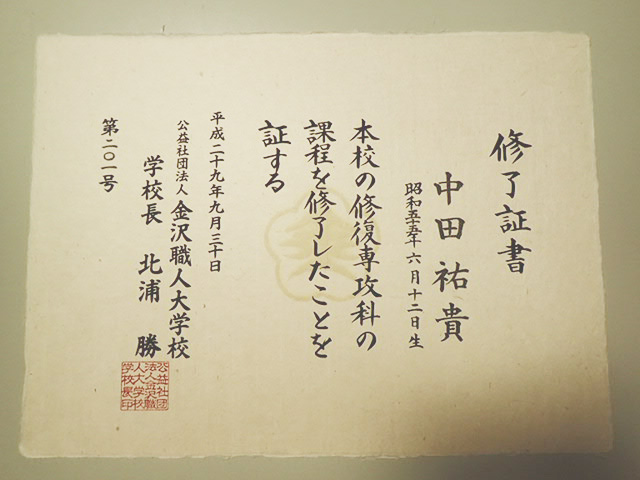 修了証書
中田祐貴
昭和五十五年六月十二日生
本校の修復専攻科の
課程を修了したことを
証する
平成二十九年九月三十日
公益社団法人 金沢職人大学校
学校長 北浦 勝
第二〇一号
公益社団
法人金沢職
人大学校
学校長印